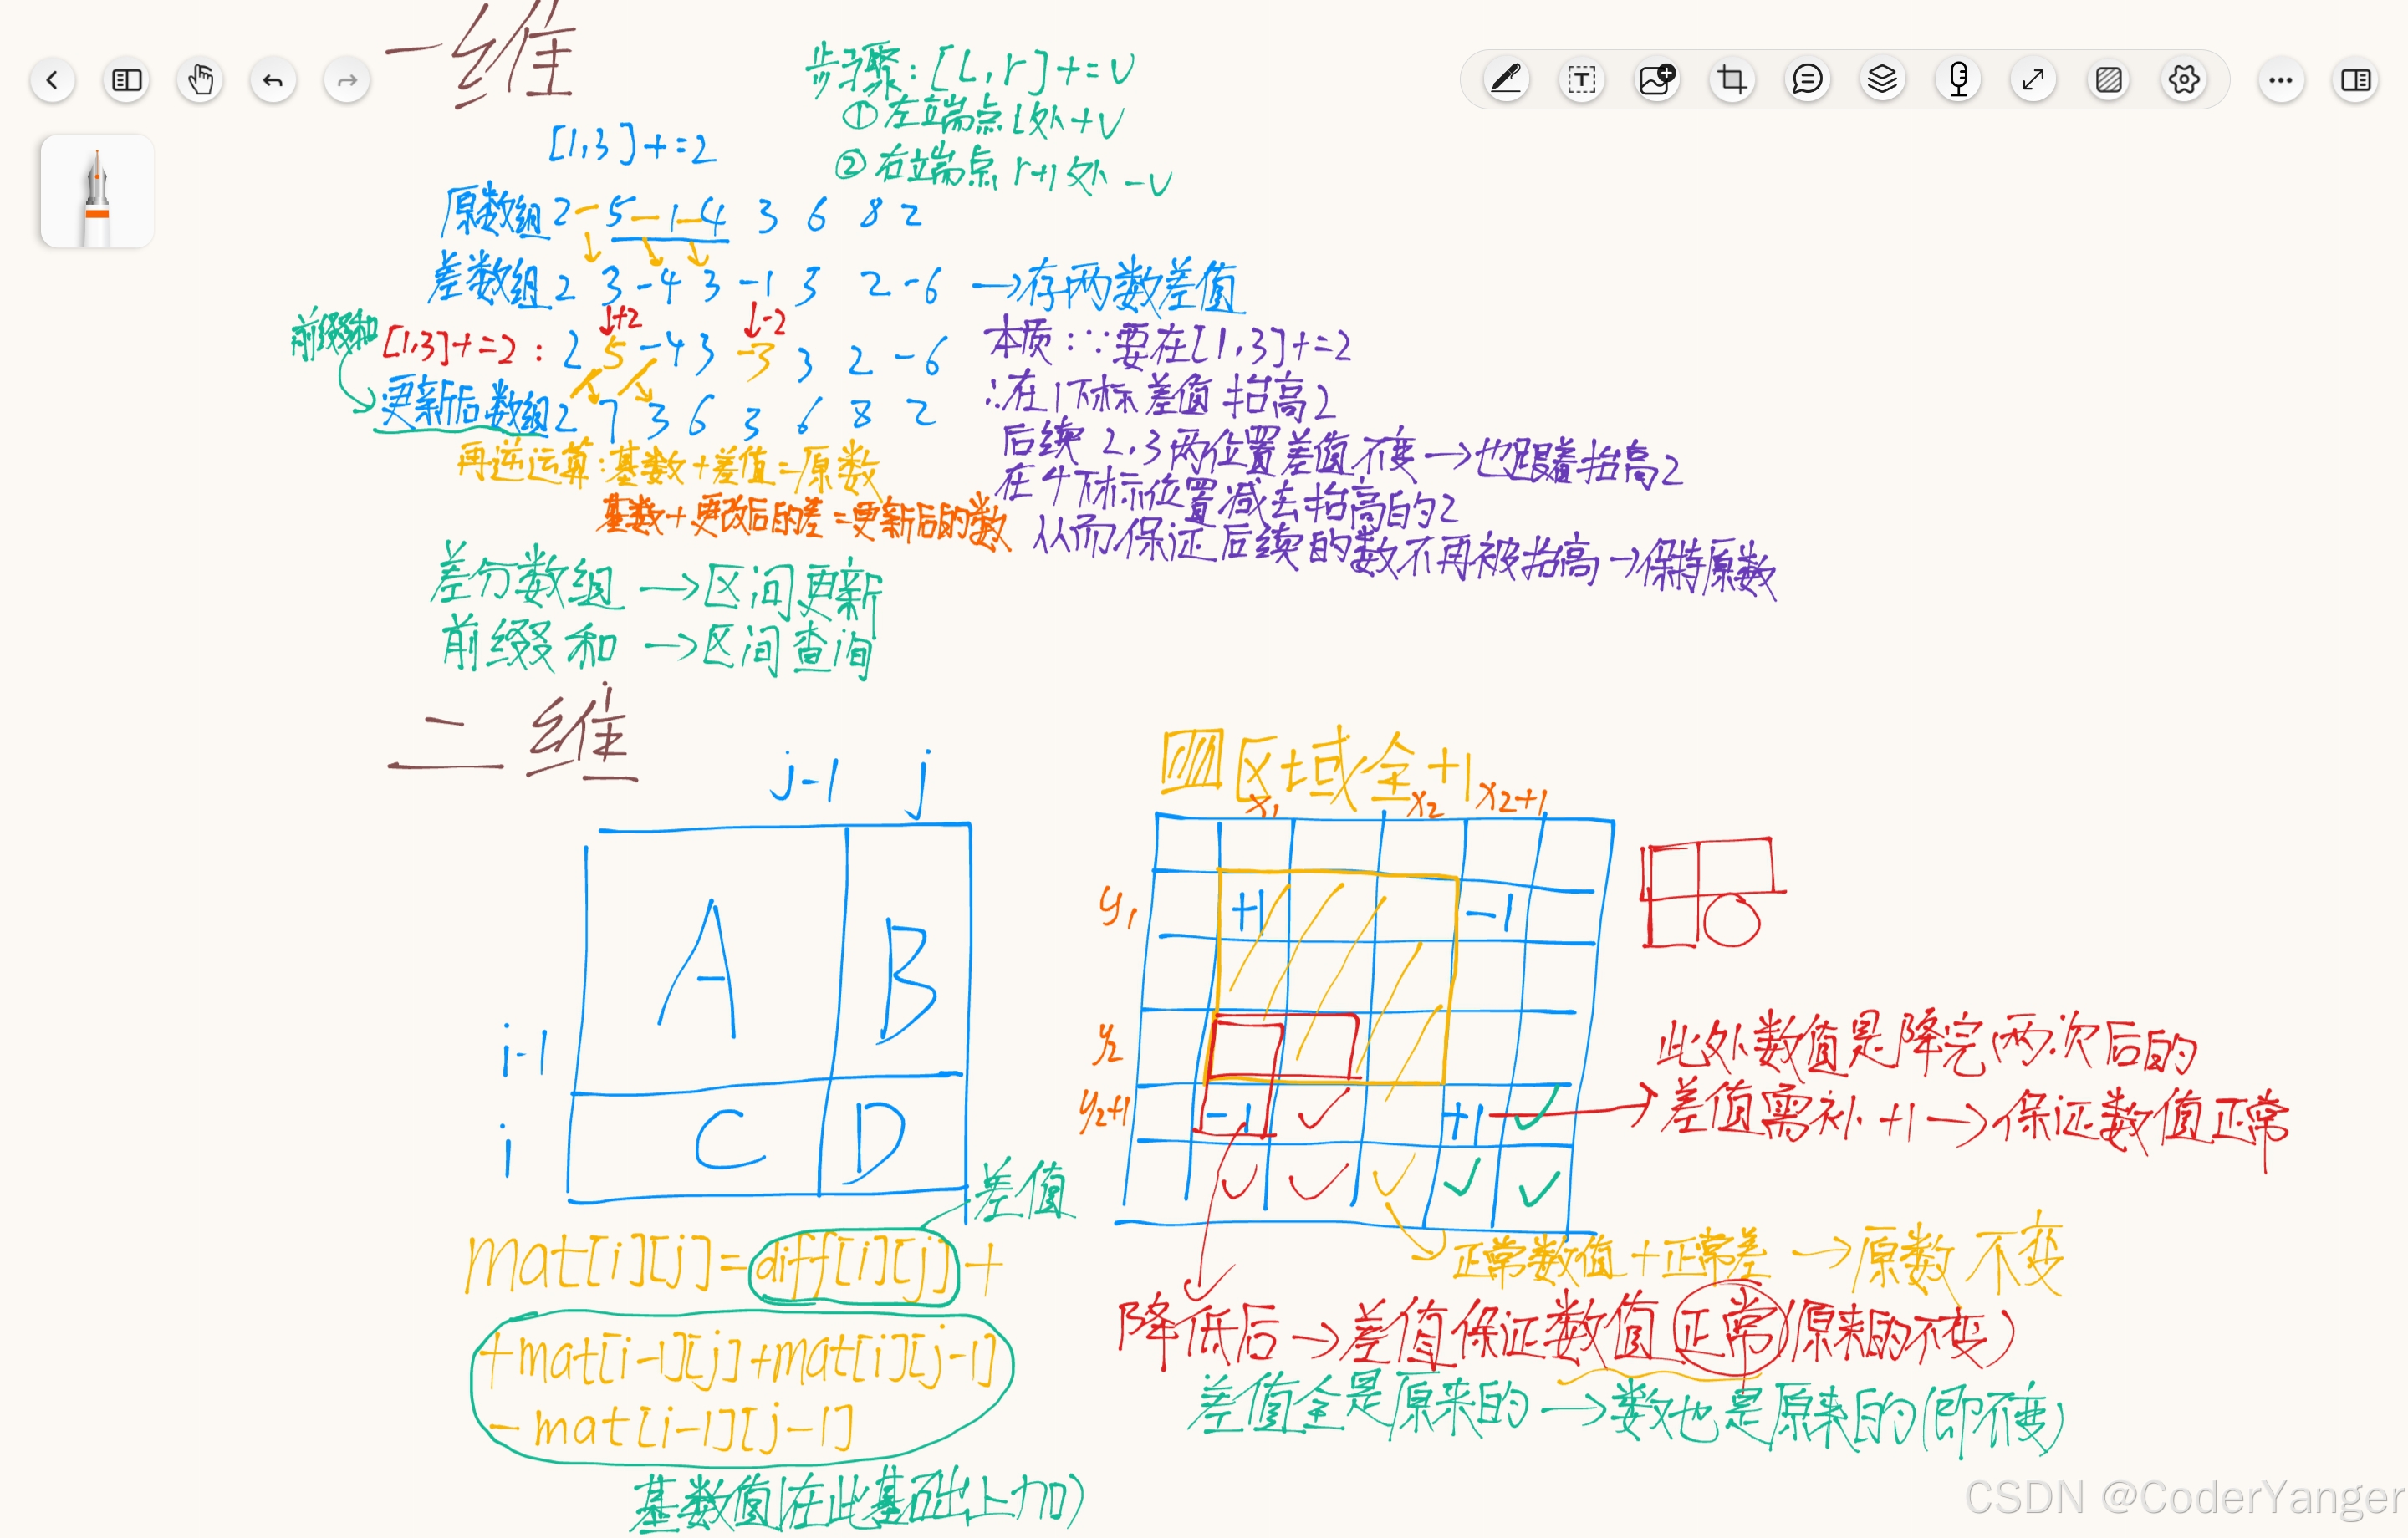 一维
步骤：[L,r]+=v
①左端点L处+v
②右端点r+1处-v
[1,3]+=2
原数组 2-5-1-4 3 6 8 2
差数组 2 3 -4 3 -1 3 2 -6 →存两数差值
↓+2 ↓-2
前缀和
[1,3]+=2：2 5 -4 3 -3 3 2 -6
更新后数组 2 7 3 6 3 6 8 2
再逆运算：基数+差值=原数
基数+更改后的差=更新后的数
本质：∵要在[1,3]+=2
∴在1下标差值抬高2
后续2,3两位置差值不变→也跟着抬高2
在4下标位置减去抬高的2
从而保证后续的数不再被抬高→保持原数
差分数组→区间更新
前缀和→区间查询
二维
j-1 j
A B
i-1
C D
i
差值
mat[i][j]=diff[i][j]+
+mat[i-1][j]+mat[i][j-1]
-mat[i-1][j-1]
基数值(在此基础上加)
区域全+1
x₁ x₂ x₂+1
y₁ +1 -1
y₂
y₂+1 -1 ✓ +1 ✓
✓ ✓ ✓ ✓ ✓
此处数值是降完两次后的
→差值需补+1→保证数值正常
正常数值+正常差→原数不变
降低后→差值保证数值正常(原来的不变)
差值全是原来的→数也是原来的(即不变)
CSDN @CoderYanger